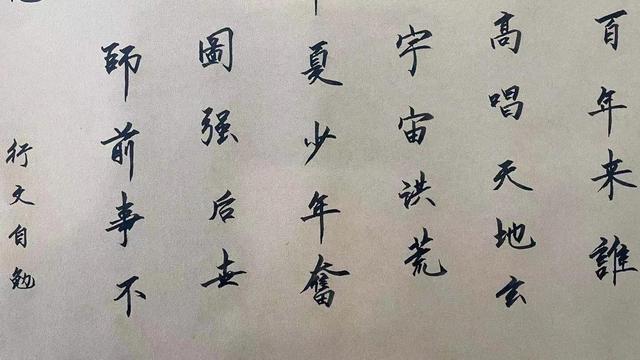 百年来誰
高唱天地玄
宇宙洪荒
夏少年奮
圖强后世
師前事不
行文自勉